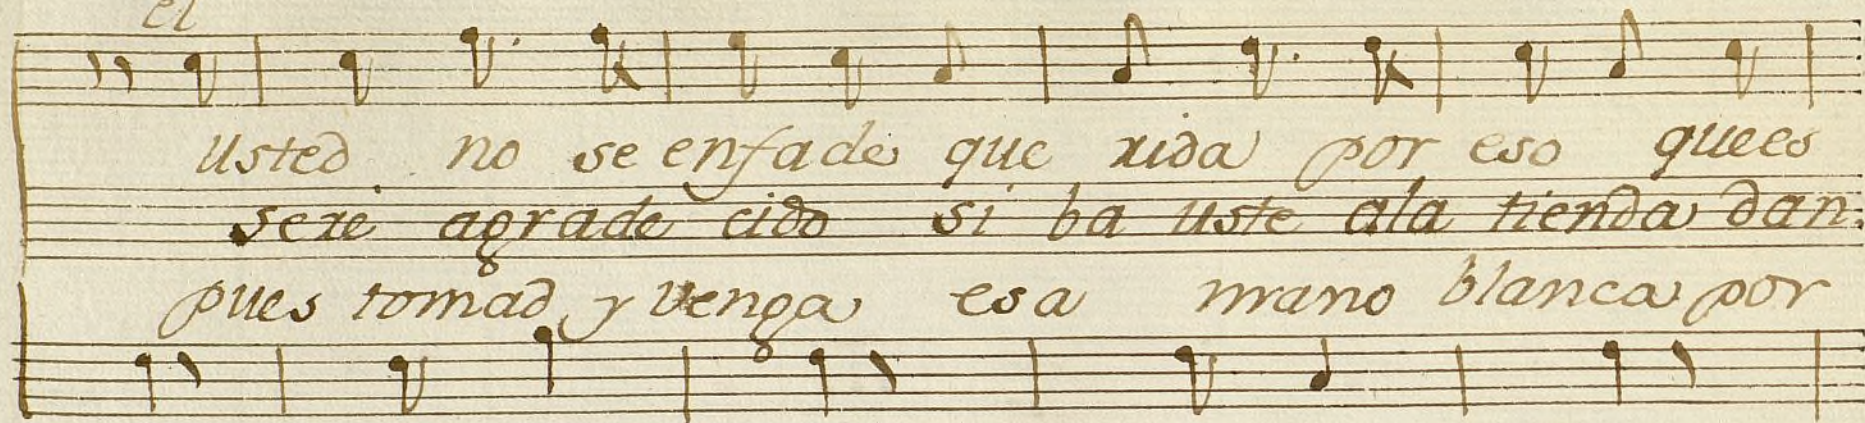 el
usted no se enfade que rida por eso quees
sere agrade cido si ba uste ala tienda dan
pues tomad y venga esa mano blanca por